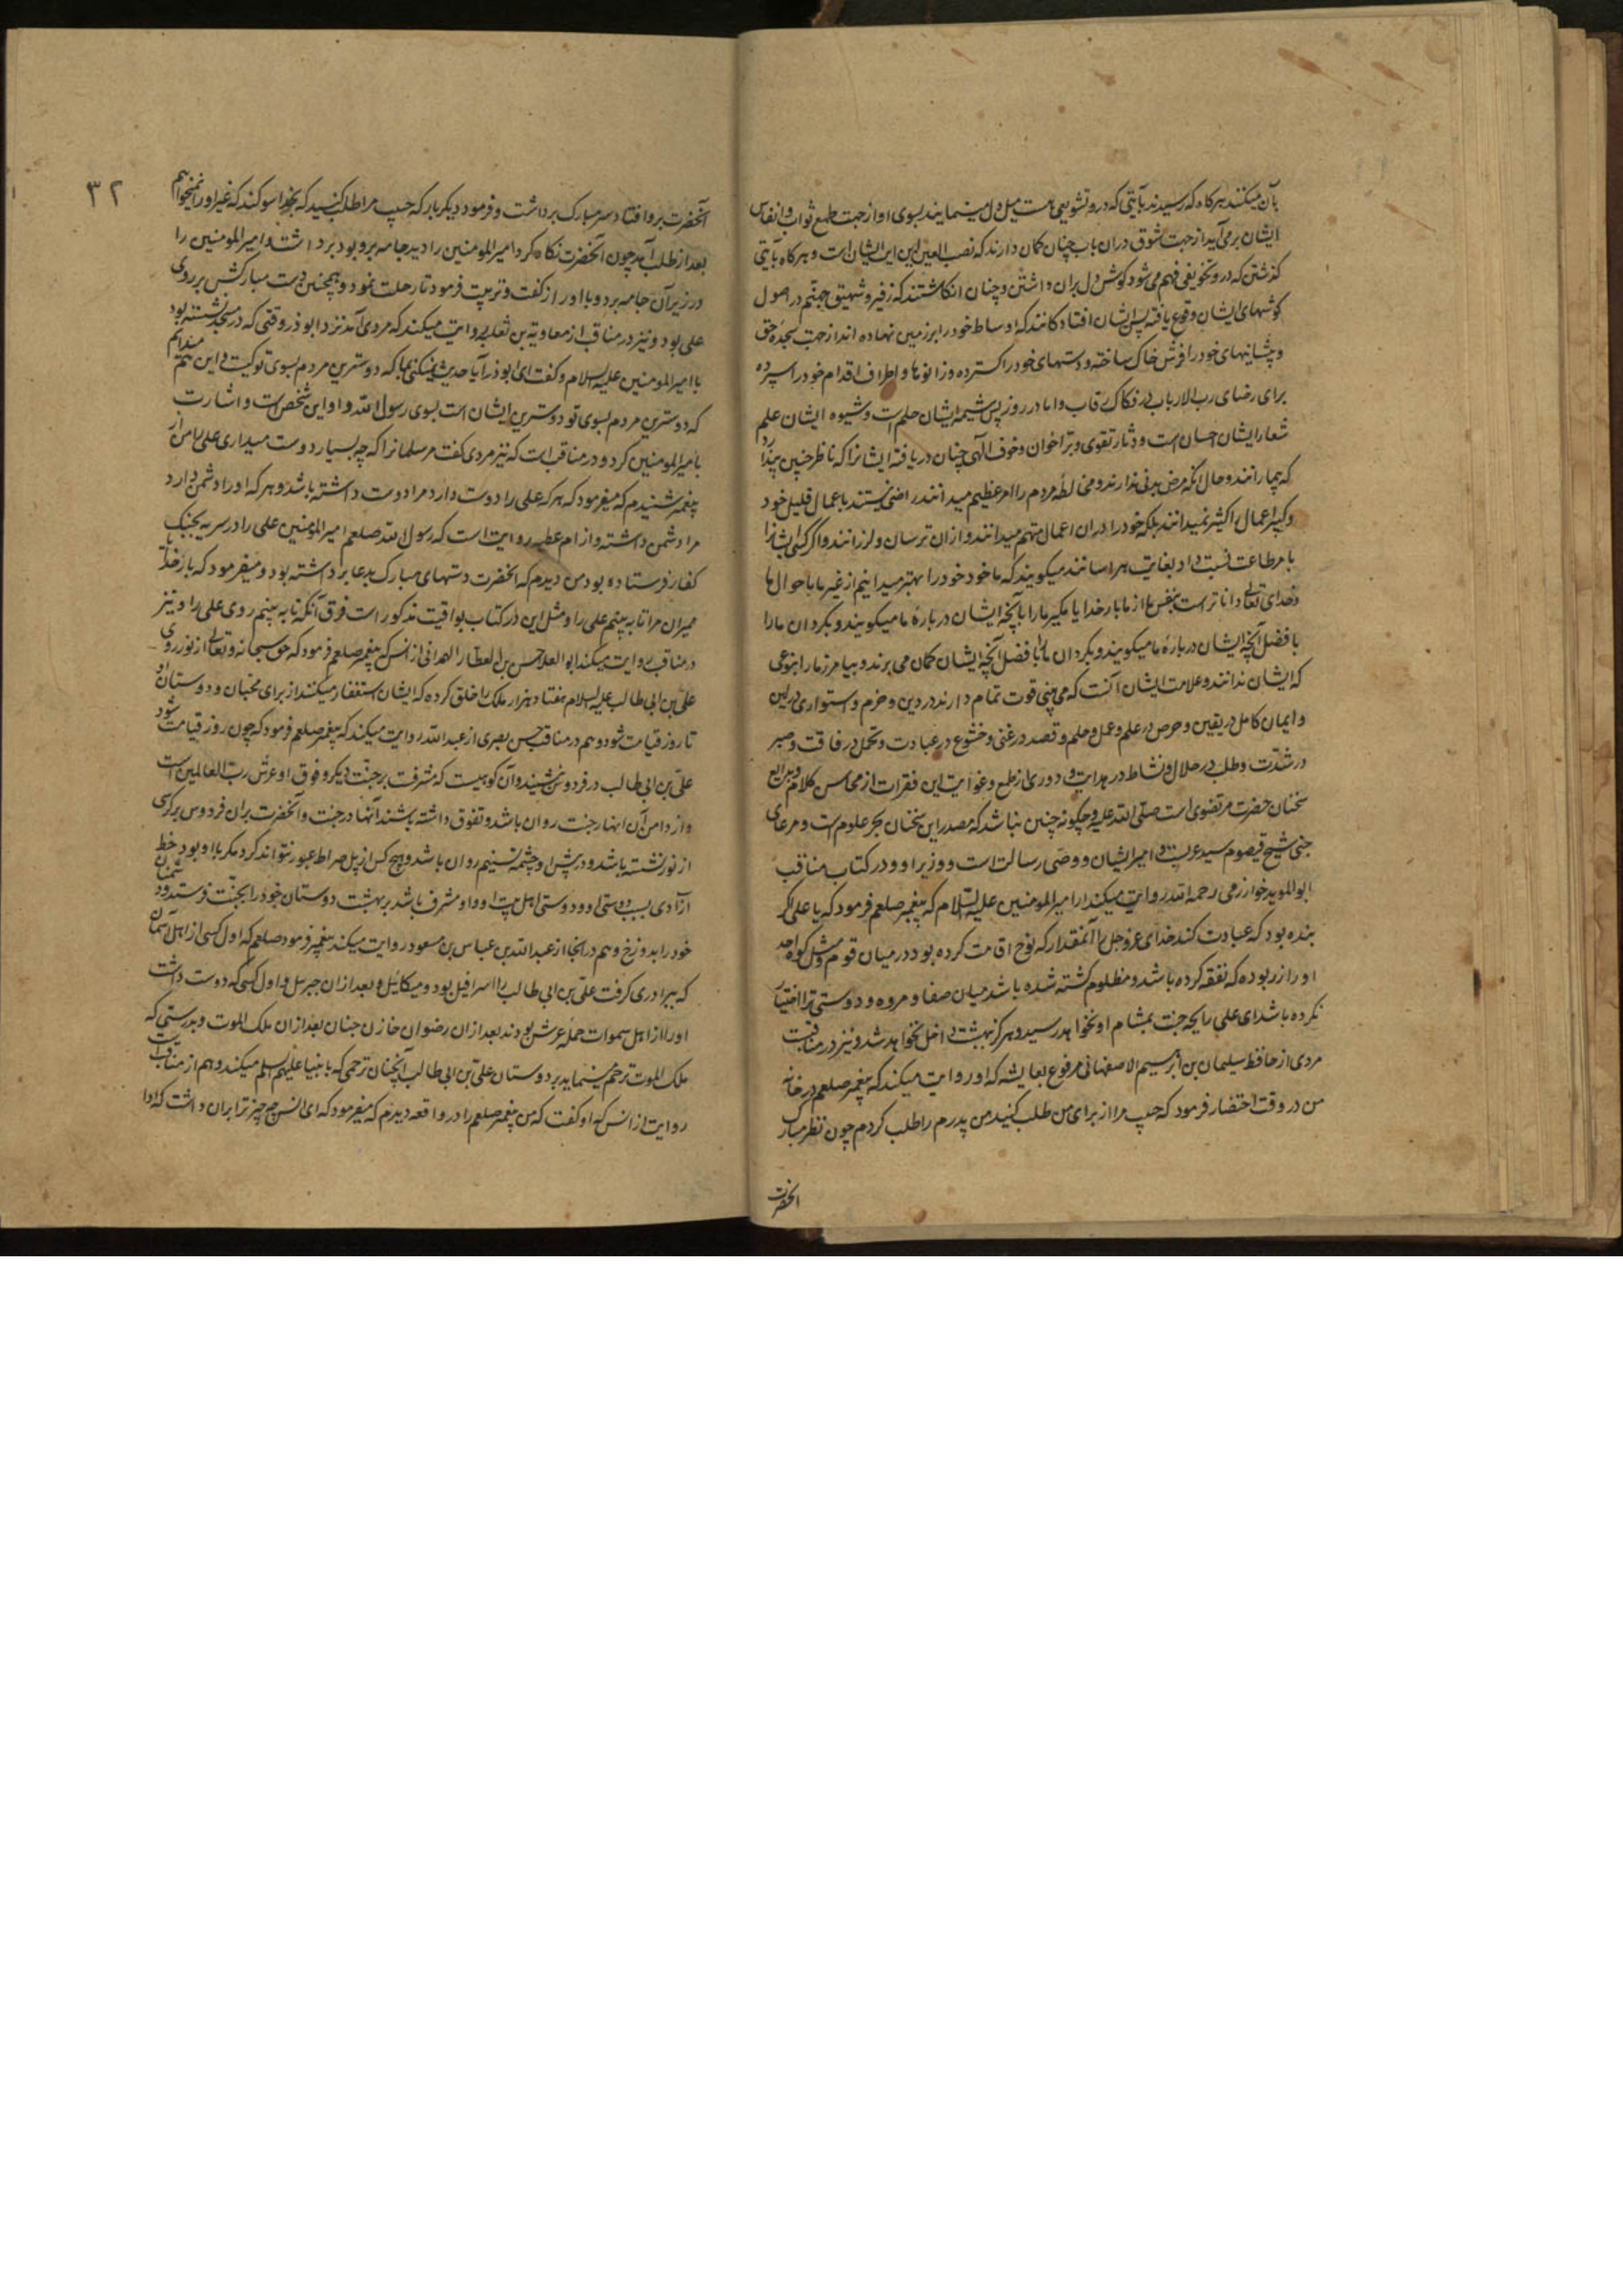 بآن میکنند هرکاه که رسیدند بآیتی که درو تشویقی هست میل دل مینمایند بسوی او از جهت طمع ثواب و انفاس
ایشان برمی آید از جهت شوق دران باب چنان کمان دارند که نصب العین این ایشان است و هرکاه بآیتی
کذشتن که درو تخویفی فهم می شود کوش دل بران داشتن و چنان انکاشتند که زفیر و شهیق جهنم در اصول
کوشهای ایشان وقوع یافته پس ایشان افتادکانند که اوساط خود را بر زمین نهاده اند از جهت سجده حق
و پیشانیهای خود را فرش خاک ساخته و دستهای خود را کسترده و زانوها و اطراف اقدام خود را سپرده
برای رضای رب الارباب در فکاک رقاب و اما در روز پس شیمه ایشان حلم است و شیوه ایشان علم
شعار ایشان احسان است و دثار تقوی و بر اخوان و خوف الهی چنان دریافته ایشانرا که ناظر چنین پندارد
که بیمارانند و حال آنکه مرض بدنی ندارند و مخالطه مردم را امر عظیم میدانند راضی نیستند باعمال قلیل خود
و کثیر اعمال را کثیر نمیدانند بلکه خود را دران اعمال متهم میدانند و ازان ترسان و لرزانند و اگر کسی ایشانرا
بامر طاعت نسبت داد بغایت هراسانند میکویند که ما خود خود را بهتر میدانیم از غیر ما باحوال ها
و خدای تعالی داناتر است بنفس ها از ما بار خدایا مکیر ما را بآنچه ایشان درباره ما میکویند و بکردان ما را
بافضل آنچه ایشان درباره ما میکویند و بکردان ما را بافضل آنچه ایشان کمان می برند و بیامرز ما را بنوعی
که ایشان ندانند و علامت ایشان آنست که می بینی قوت تمام دارند در دین و حزم و استواری در لین
و ایمان کامل در یقین و حرص در علم و عمل و حلم و قصد در غنی و خشوع در عبادت و تحمل در فاقت و صبر
در شدت و طلب در حلال و نشاط در هدایت و دوری از طمع و غوایت این فقرات از محاسن کلام و بدایع
سخنان حضرت مرتضوی است صلی الله علیه و چکونه چنین نباشد که مصدر این سخنان بحر علوم است و مرعای
شیح قیصوم سید عرب و امیر ایشان و وصی رسالت است و وزیر او و در کتاب مناقب
ابوالموید خوارزمی رحمه الله روایت میکند از امیر المومنین علیه السلام که پیغمبر صلعم فرمود که یا علی اگر
بنده بود که عبادت کند خدای عزوجل را آنمقدار که نوح اقامت کرده بود در میان قوم و مثل کوه احد
او را زر بوده که نفقه کرده باشد و مظلوم کشته شده باشد میان صفا و مروه و دوستی ترا اختیار
نکرده باشد ای علی رایحه جنت بمشام او نخواهد رسید و هرکز ببهشت داخل نخواهد شد و نیز در مناقبست
مردی از حافظ سلیمان بن ابرهیم الاصفهانی مرفوع بعایشه که او روایت میکند که پیغمبر صلعم در خانه
من در وقت احتضار فرمود که حبیب مرا از برای من طلب کنید من پدرم را طلب کردم چون نظر مبارک
انحضرت
۳۲
آنحضرت برو افتاد سر مبارک برداشت و فرمود دیکر بار که حبیب مرا طلب کنید که بخدا سوکند که غیر او را نمیخواهم
بعد از طلب آمد چون آنحضرت نکاه کرد امیر المومنین را دید جامه برو بود برداشت و امیر المومنین را
در زیر آن جامه برد و با او راز کفت و تربیت فرمود تا رحلت نمود و همچنین دست مبارکش بر روی
علی بود و نیز در مناقب از معاویه بن ثعلبه روایت میکند که مردی آمد نزد ابوذر وقتی که در مسجد نشسته بود
با امیر المومنین علیه السلام و کفت ای ابوذر آیا حدیث نمیکنی بما که دوسترین مردم بسوی تو کیست این میدانم
که دوسترین مردم بسوی تو دوسترین ایشان است بسوی رسول الله و او این شخص است و اشارت
بامیر المومنین کرد و در مناقب است که نیز مردی کفت مر سلمانرا که چه بسیار دوست میداری علی را من از
پیغمبر شنیدم که میفرمود که هرکه علی را دوست دارد مرا دوست داشته باشد و هرکه او را دشمن دارد
مرا دشمن داشته و از ام عطیه روایت است که رسول الله صلعم امیر المومنین علی را در سریه بجنک
کفار فرستاده بود من دیدم که انحضرت دستهای مبارک بدعا برداشته بود و میفرمود که بار خدایا
ممیران مرا تا ببینم علی را و مثل این در کتاب یواقیت مذکور است فوق آنکه تا به بینم روی علی را و نیز
در مناقب روایت میکند ابو العلا حسن بن العطار الهمدانی از انس که پیغمبر صلعم فرمود که حق سبحانه و تعالی از نور روی
علی بن ابی طالب علیه السلام هفتاد هزار ملک را خلق کرده که ایشان استغفار میکنند از برای محبان و دوستان او
تا روز قیامت شود و هم در مناقب حسن بصری از عبدالله روایت میکند که پیغمبر صلعم فرمود که چون روز قیامت شود
علی بن ابی طالب در فردوس نشیند و آن کوهیست که مشرفست بر جنت دیکر و فوق او عرش رب العالمین است
و از دامن آن انهار جنت روان باشد و تفوق داشته باشند آنها در جنت و آنحضرت بران فردوس بر کرسی
از نور نشسته باشد و در پیش او چشمه تسنیم روان باشد و هیچ کس از پل صراط عبور نتواند کرد مکر با او بود خط
آزادی بسبب دوستی او و دوستی اهل بیت او و او مشرف باشد بر بهشت دوستان خود را بجنت فرستد و دشمنان
خود را بدوزخ و هم در انجا از عبدالله بن عباس بن مسعود روایت میکند پیغمبر فرمود صلعم که اول کسی از اهل آسمان
که ببرادری کرفت علی بن ابی طالب را اسرافیل بود و میکائیل و بعد ازان جبرییل و اول کسی که دوست داشت
او را از اهل سموات حمله عرش بودند بعد ازان رضوان خازن جنان بعد ازان ملک الموت و بدرستی که
ملک الموت ترحم مینماید بر دوستان علی بن ابی طالب آنچنان ترحمی که بانبیا علیهم السلم میکند و هم از مناقب است
روایت از انس که او کفت که من پیغمبر صلعم را در واقعه دیدم که میفرمود که ای انس چه چیز ترا بران داشت که ادا